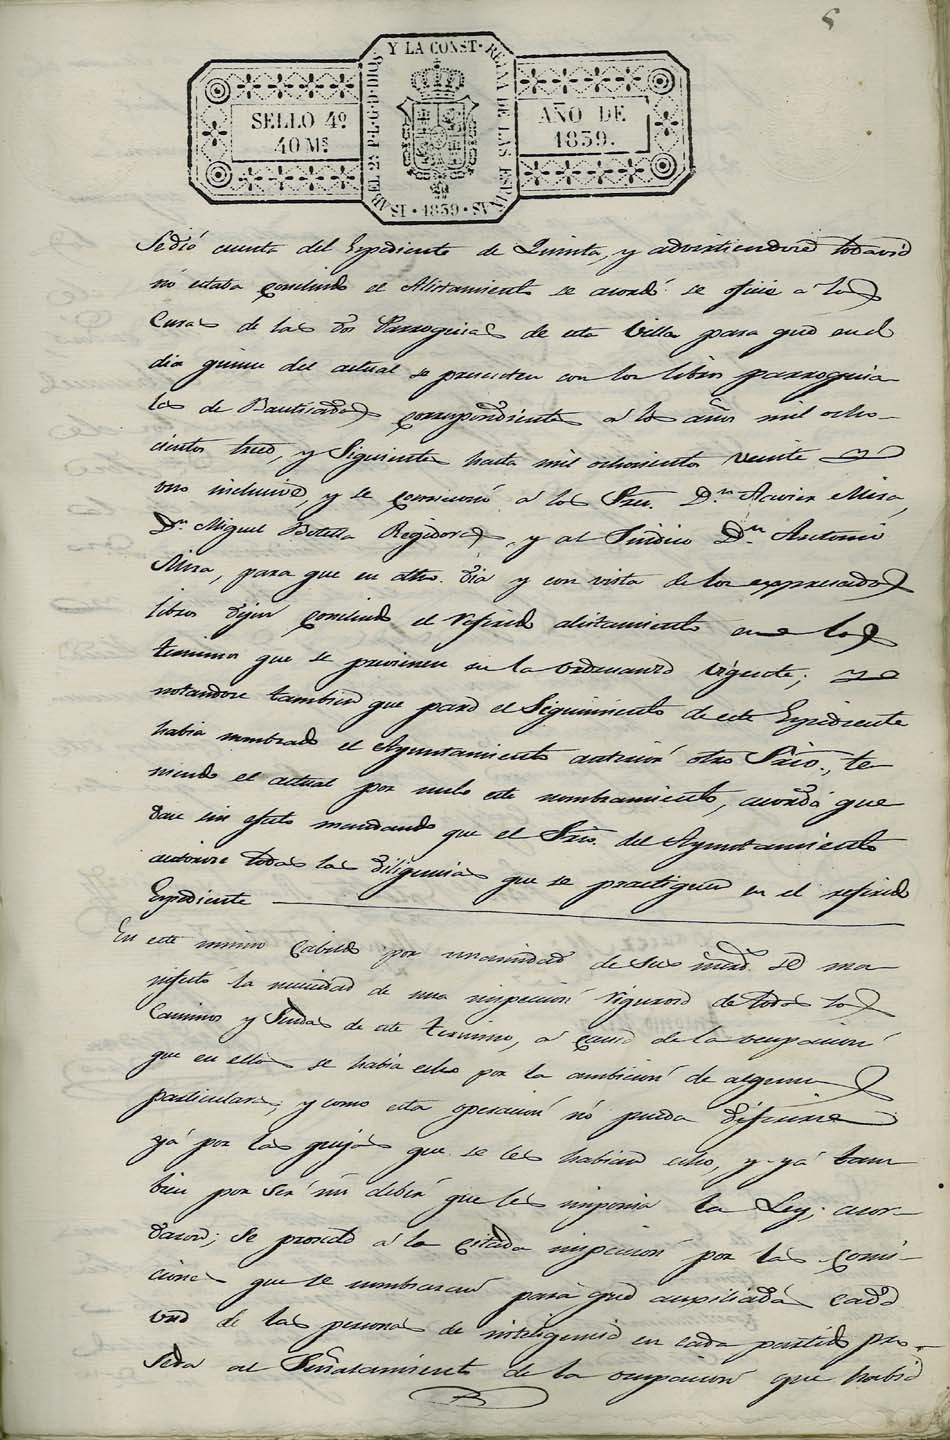 5
SELLO 4º
40 Mˢ
ISABEL 2ª P.L.G.D.DIOS Y LA CONST. REINA DE LAS ESPAÑAS
· 1839 ·
AÑO DE
1839.
Se dió cuenta del Expediente de Quinta, y advirtiendose todavia
nó estaba concluido el Alistamiento se acordó se oficie a los
Curas de las dos Parroquias de esta Villa para que en el
dia quince del actual se presenten con los libros parroquia
les de Bautizados correspondientes á los años mil ocho-
cientos tres, y siguientes hasta mil ochocientos veinte y
uno inclusive, y se comisionó á los Sres. Dn. Xavier Mira,
Dn. Miguel Botella Regidores, y al Sindico Dn. Antonio
Mira, para que en dho. dia y con vista de los expresados
libros dejen concluido el referido alistamiento en los
terminos que se previenen en la ordenanza vigente; y
notandose tambien que para el seguimiento de este Expediente
habia nombrado el Ayuntamiento anterior otro Srio., te-
niendo el actual por nulo este nombramiento, acordó que
dase sin efecto mandando que el Srio. del Ayuntamiento
autorice todas las diligencias que se practiquen en el referido
Expediente
En este mismo Cabildo por unanimidad de sus mrds. se ma
nifestó la necesidad de una inspeccion rigurosa de todos los
Caminos y Sendas de este termino, á causa de la ocupacion
que en ellos se habia echo por la ambicion de algunos
particulares; y como esta operacion nó pueda diferirse
yá por las quejas que se les habian echo, y yá tam
bien por ser un deber que les imponia la Ley; acor-
daron; Se proceda á la citada inspeccion por las comi-
ciones que se nombrarán para que auxiliadas cada
una de las personas de inteligencia en cada partido pro-
ceda al Señalamiento de la ocupacion que habia